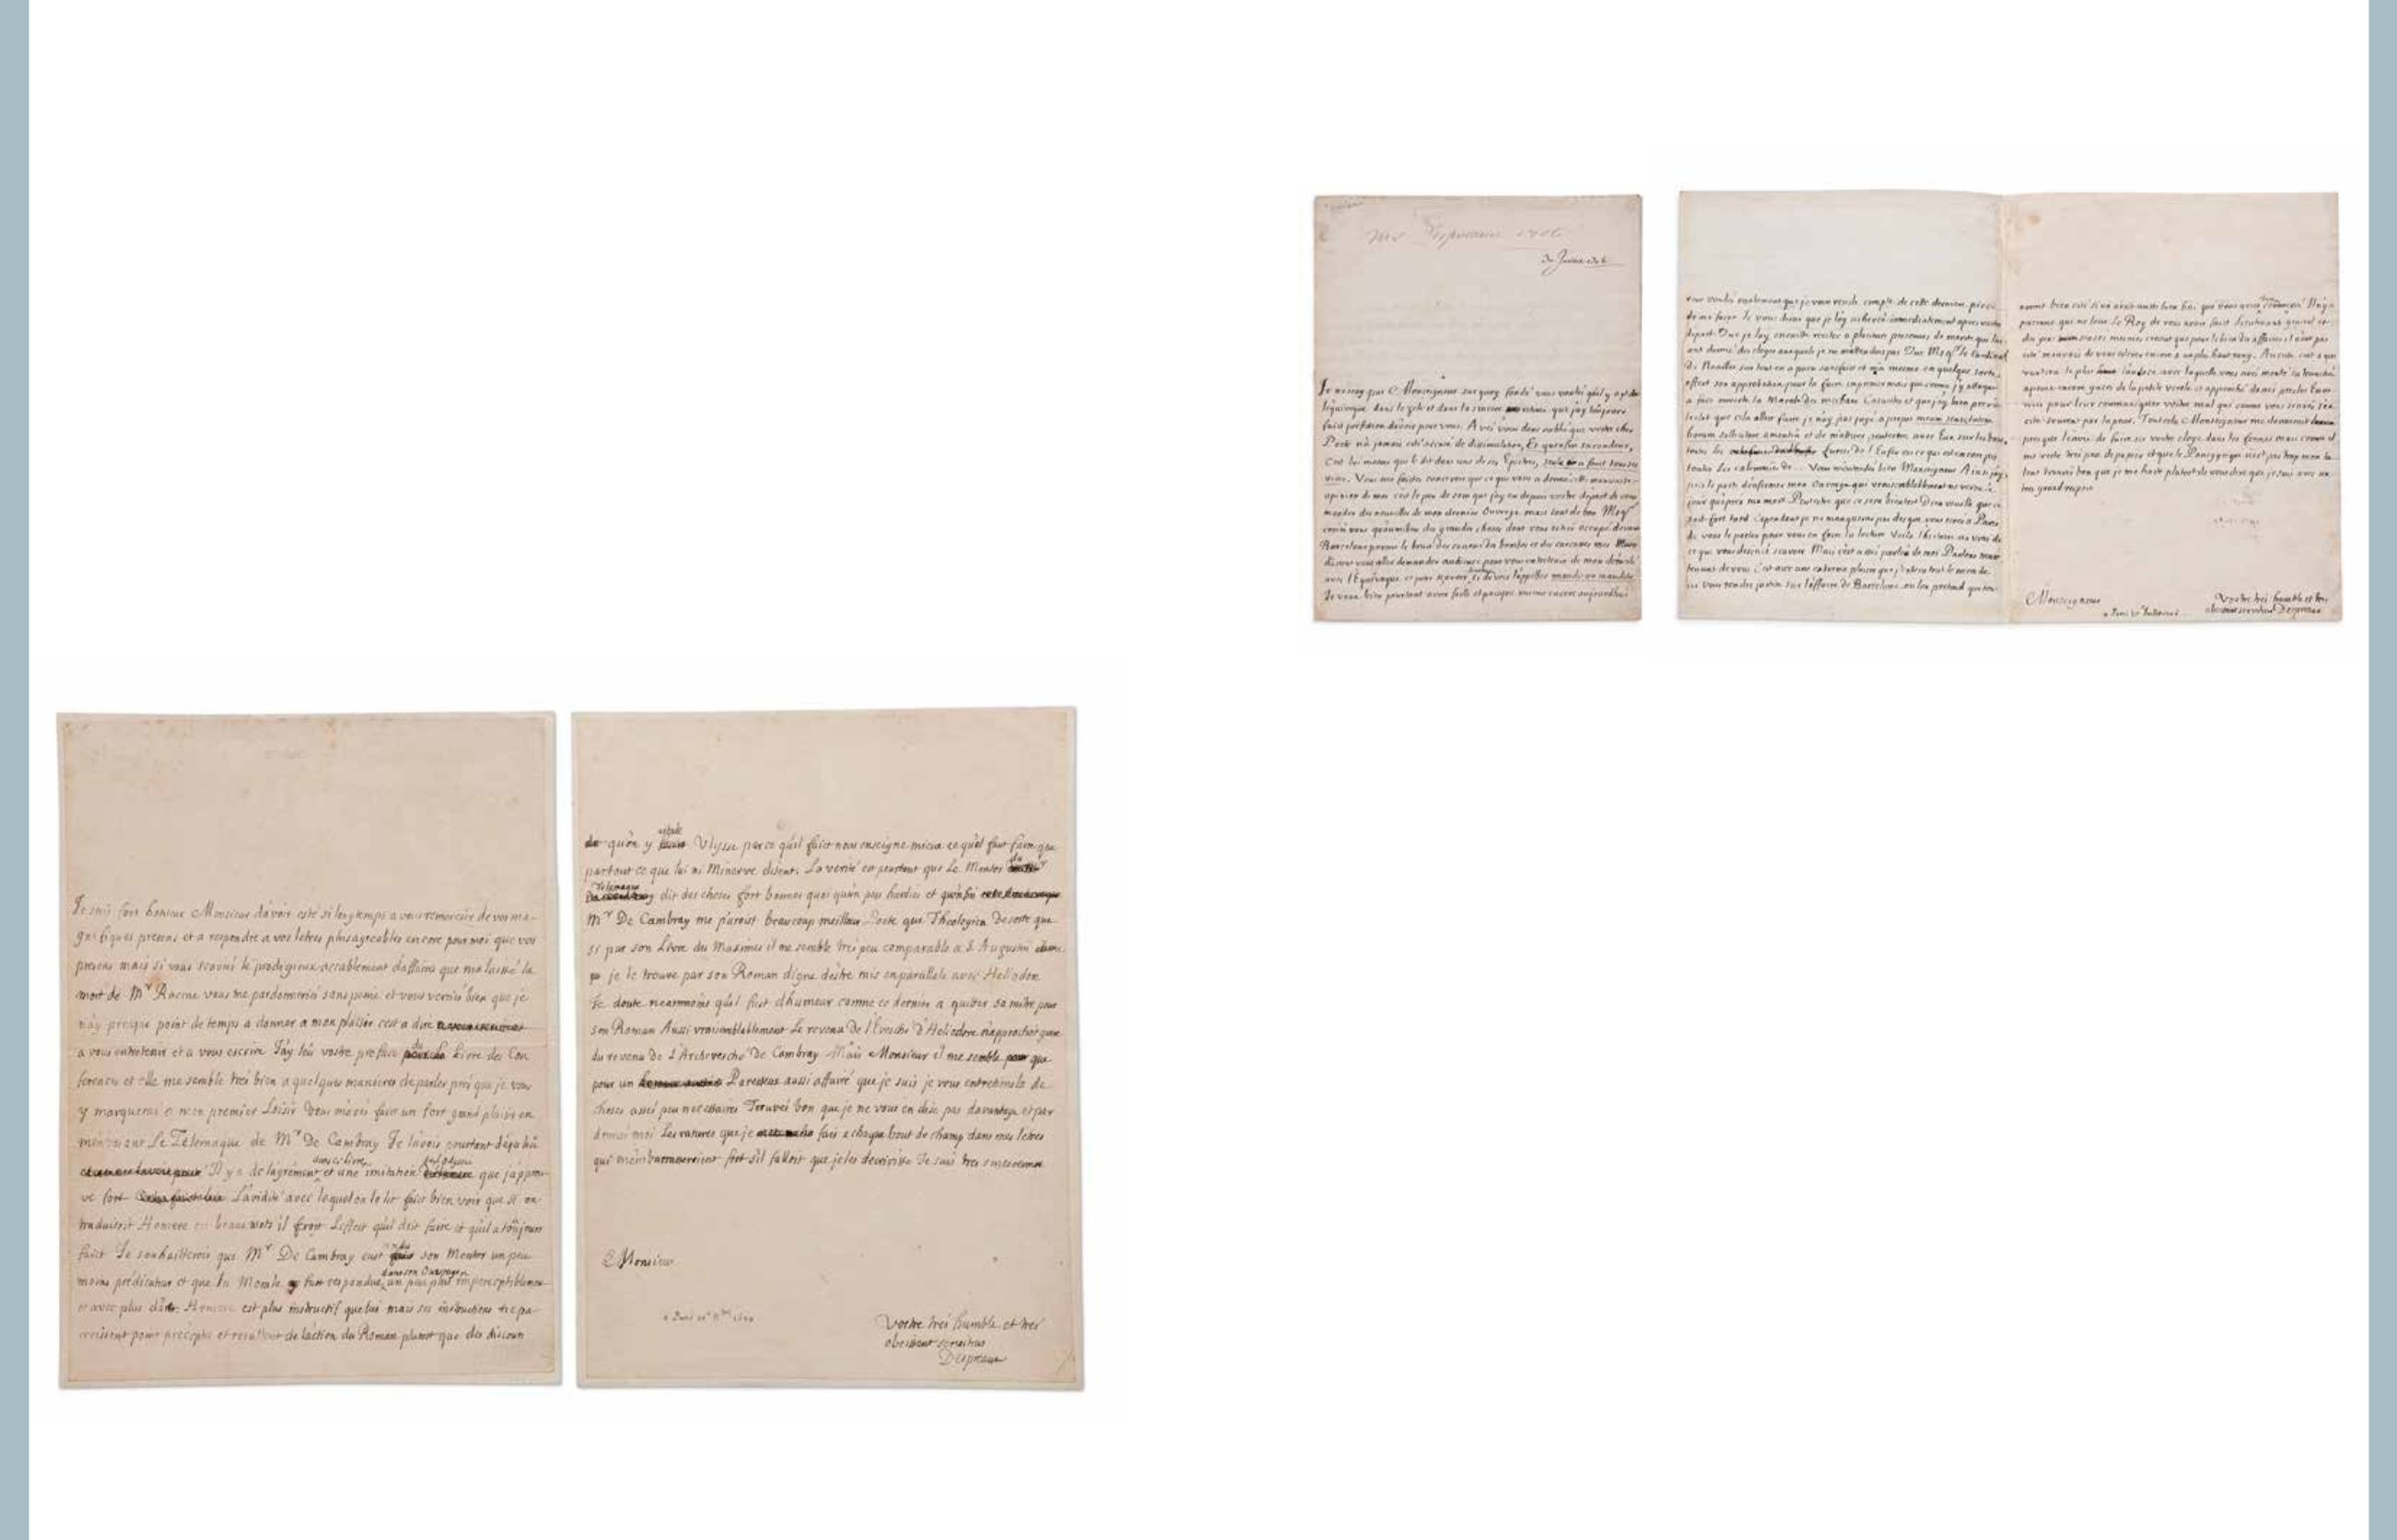 Je suis fort honteux Monsieur d'avoir esté si longtemps a vous remercier de vos ma-
gnifiques presens et a respondre a vos letres plus agreables encore pour moi que vos
presens mais si vous scaviés le prodigieux accablement d'affaires que m'a laissé la
mort de Mr Racine vous me pardonneriés sans peine et vous verriés bien que je
n'ay presque point de temps a donner a mon plaisir c'est a dire
a vous entretenir et a vous escrire J'ay leu vostre preface du Livre des Con
ferences et elle me semble tres bien a quelques manieres de parler prés que je vous
y marquerai a mon premier Loisir Vous m'avés faict un fort grand plaisir en
m'envoiant Le Télemaque de Mr De Cambray Je l'avois pourtant deja leu
Il y a de l'agrément dans ce livre et une imitation de l'Odyssée que j'approu
ve fort L'avidité avec lequel on le lit faict bien voir que si on
traduisoit Homere en beaux mots il feroit L'effect qu'il doit faire et qu'il a toûjours
faict Je souhaitterois que Mr De Cambray eust rendu son Mentor un peu
moins prédicateur et que la Morale fust respandue dans son Ouvrage un peu plus imperceptiblement
et avec plus d'art. Homere est plus instructif que lui mais ses instructions ne pa
roissent point préceptes et resultent de l'action du Roman plutost que des discours
de qu'on y estale Ulysse par ce qu'il faict nous enseigne mieux ce qu'il faut faire que
par tout ce que lui ni Minerve disent. La verité est pourtant que Le Mentor du
Telemaque dit des choses fort bonnes quoi qu'un peu hardies et qu'enfin
Mr De Cambray me paroist beaucoup meilleur Poete que Theologien De sorte que
si par son Livre des Maximes il me semble tres peu comparable a S. Augustin
je le trouve par son Roman digne d'estre mis en parallele avec Heliodore
Je doute neanmoins qu'il fust d'humeur comme ce dernier a quitter sa mitre pour
son Roman Aussi vraisemblablement Le revenu de l'Evesché d'Heliodore n'approchoit guere
du revenu de L'Archevesché De Cambray Mais Monsieur il me semble que
pour un Paresseux aussi affairé que je suis je vous entretiens la de
choses assés peu necessaires Trouvés bon que je ne vous en dise pas davantage et par
donnés moi Les ratures que je fais a chaque bout de champ dans mes letres
qui m'embarrasseroient fort s'il falloit que je les rescrivisse Je suis tres sincerement
Monsieur
Vostre tres humble et tres
obeissant serviteur
Despreaux
Je ne sçay pas Monseigneur sur quoy fondé vous voulés qu'il y ait de
l'équivoque dans le zele et dans la sincere estime que j'ay toujours
faict profession d'avoir pour vous. Avés vous donc oublié que vostre cher
Poete n'a jamais esté accusé de dissimulation, Et qu'enfin sa candeur,
C'est lui mesme qui le dit dans une de ses Epistres, seule a faict tous ses
vices. Vous me faites concevoir que ce qui vous a donné cette mauvaise
opinion de moi c'est le peu de soin que j'ay eu depuis vostre depart de vous
mander des nouvelles de mon dernier Ouvrage mais tout de bon Monseigr
croiés vous qu'au milieu des grandes choses dont vous estiés occupé devant
Barcelone parmi le bruit des canons des bombes et des carcasses mes Muses
dûssent vous aller demander audience pour vous entretenir de mon démeslé
avec l'Equivoque et pour sçavoir si de vous l'appeller maudit ou maudite
Je veux bien pourtant avoir failli et puisque mesme encore aujourd'hui
vous voulés resolument que je vous rende compte de cette derniere piece
de ma façon Je vous dirai que je l'ay achevée immediatement apres vostre
depart Que je l'ay ensuitte recitée a plusieurs personnes de merite qui lui
ont donné des éloges auxquels je ne m'attendois pas Que Monseigr le Cardinal
De Noailles sur tout en a paru satisfaict et m'a mesme en quelque sorte
offert son approbation pour la faire imprimer mais que comme j'y attaque
a face ouverte la Morale des meschans Casuistes et que j'ay bien preveu
l'eclat que cela alloit faire je n'ay pas jugé a propos meam senectutem
horum sollicitare amentia et de m'attirer peutestre avec Eux sur les bras
toutes les furies de l'Enfer ou ce qui est encore pis
toutes les calomnies de... Vous m'entendés bien Monseigneur Ainsi j'ay
pris le parti d'enfermer mon Ouvrage qui vraisemblablement ne verra le
jour qu'aprés ma mort Peutestre que ce sera bientost Dieu veuille que ce
soit fort tard Cependant je ne manquerai pas des que vous serés a Paris
de vous le porter pour vous en faire la lecture Voila l'histoire au vrai de
ce que vous desiriés sçavoir Mais c'est assés parlé de moi Parlons main
tenant de vous C'est avec une extreme plaisir que j'entens tout le monde
ici vous rendre justice sur l'affaire de Barcelone ou l'on pretend que tout
auroit bien esté si on avoit aussi bien fini que vous aviés bien commencé Il n'y a
personne qui ne loue Le Roy de vous avoir faict Lieutenant general et
des gens sensés mesmes croient que pour le bien des affaires il n'eust pas
esté mauvais de vous élever encore a un plus haut rang. Au reste c'est a qui
vantera le plus l'audace avec laquelle vous avés monté la tranchée
a peine encore gueri de la petite verole et approché d'assés prés les Enne
mis pour leur communiquer vostre mal qui comme vous sçavés s'ex
cite souvent par la peur. Tout cela Monseigneur me donneroit
presque l'envie de faire ici vostre éloge dans les formes mais comme il
me reste tres peu de papier et que le Panegyrique n'est pas trop mon ta
lent trouvés bon que je me haste plutost de vous dire que je suis avec un
tres grand respect
Monseigneur
Vostre tres humble et tres
obeissant serviteur Despreaux